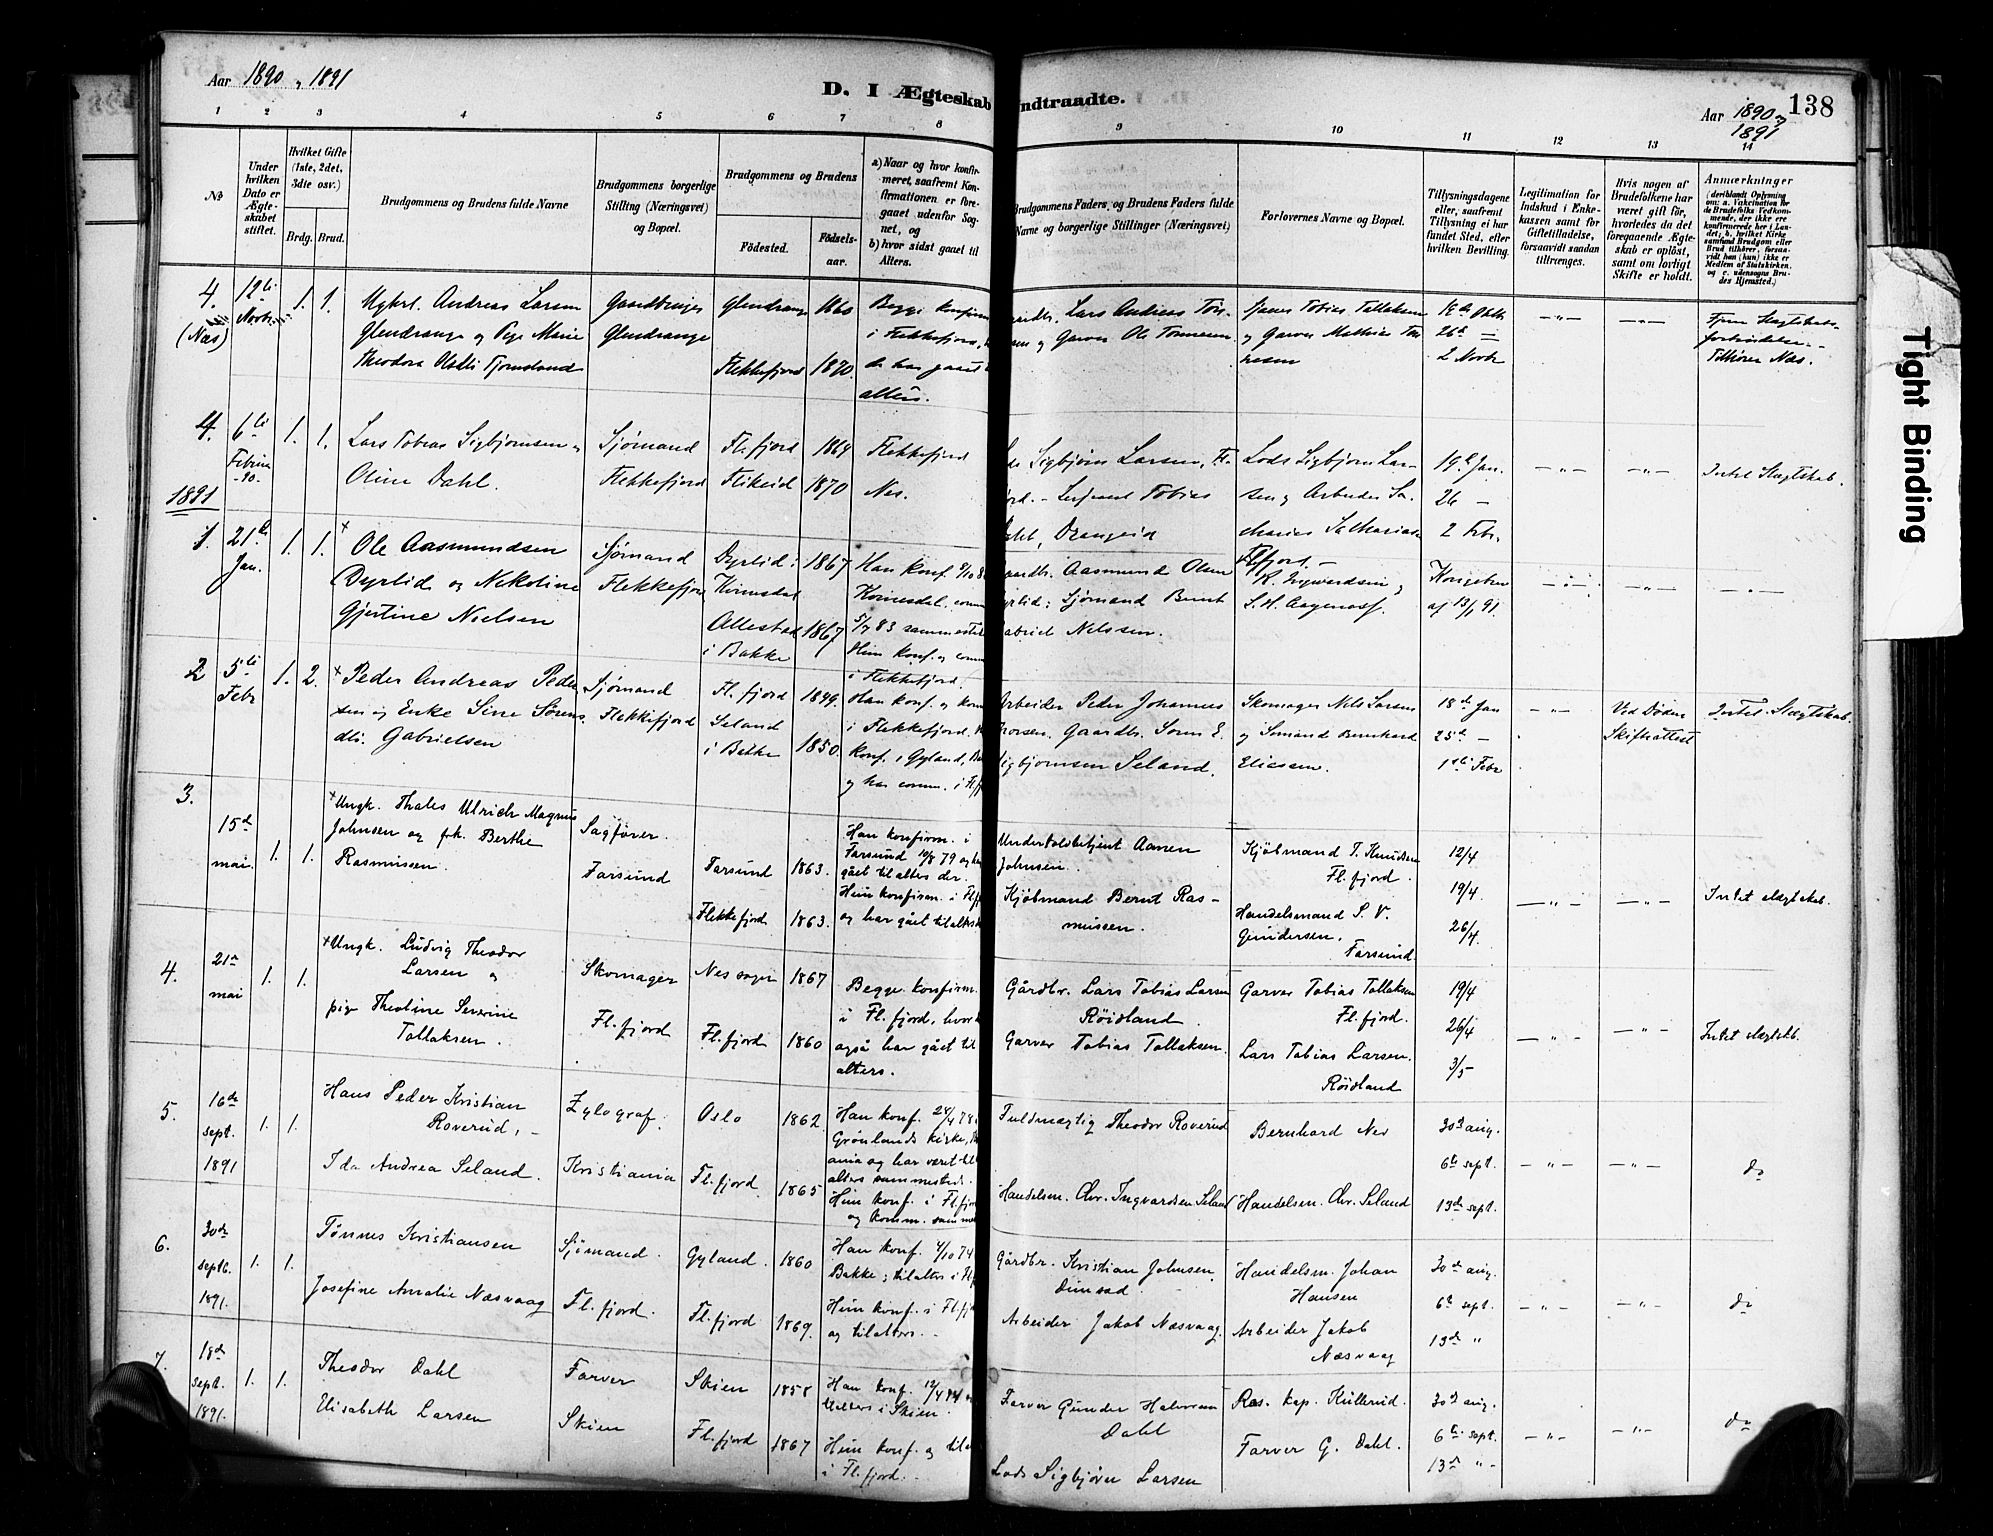 Aar 1890, 1891
D. I Ægteskab Indtraadte.
Aar 1890 1891
138
1 2 3 4 5 6 7 8 9 10 11 12 13 14
№
Under hvilken Dato er Ægteskabet stiftet.
Hvilket Gifte (1ste, 2det, 3die osv.)
Brdg. Brud.
Brudgommens og Brudens fulde Navne
Brudgommens borgerlige Stilling (Næringsvei) og Bopæl.
Brudgommens og Brudens
Fødested.
Fødselsaar.
a) Naar og hvor konfirmeret, saafremt Konfirmationen er foregaaet udenfor Sognet, og
b) hvor sidst gaaet til Alters.
Brudgommens Faders og Brudens Faders fulde Navne og borgerlige Stillinger (Næringsvei)
Forlovernes Navne og Bopæl.
Tillysningsdagene eller, saafremt Tillysning ei har fundet Sted, efter hvilken Bevilling.
Legitimation for Indskud i Enkekassen samt for Giftetilladelse, forsaavidt saadan tiltrænges.
Hvis nogen af Brudefolkene har været gift før, hvorledes da det foregaaende Ægteskab er opløst, samt om lovligt Skifte er holdt.
Anmærkninger
(deriblandt Oplysning om: a. Vakcination for de Brudefolks Vedkommende, der ikke ere konfirmerede her i Landet; b. hvilket Kirkesamfund Brudgom eller Brud tilhører, forsaavidt han (hun) ikke er Medlem af Statskirken, og c. udensogns Brudes Hjemsted.)
4. (Næs) 12te Novbr. 1. 1.
Ugkrl. Andreas Larsen
Glendrange og Pige Marie
Theodora Olsdtr Tjomsland
Gaardbruger
Glendrange
Glendrange 1860
Flekkefjord 1870.
Begge konfirm
i Flekkefjord,
de har gaaet
alters.
Lars Andreas Tør-
sen og Garver Ole Tønnesen
Garver Tobias Tollaksen
og Garver Mathias
18de Oktb
26d =
2 Novbr
Tjern Slægtskabs-
forbindelse.
Tilhører Næs.
4. 6te Februar 1. 1.
Lars Tobias Sigbjørnsen og
Oline Dahl.
Sjømand
Flekkefjord
Fl.fjord 1864
Flikeid 1870
Flekkefjord
Nes.
Sigbjørn Larsen, Fl.
Sersjant Tobias
Drangeid
Lods Sigbjørn Lar-
sen og Arbeider Za-
charias Zachariasen
Flfjord. -
19d Jan.
26 -
2 Febr.
Intet Slægtskab.
1891
1. 21de Jan. 1. 1.
Ole Aasmundsen
Dyrlid og Nekoline
Gjertine Nielsen
Sjømand
Flekkefjord
Dyrlid: 1867
Kvinesdal
Allestad 1867
i Bakke
Han konf.
Kvinesdal. comm
5/7 83 sammested
Hun konf. og comm
i Flekkefjord.
Gaardbr. Aasmund Olsen
Dyrlid; Sjømand Bernt
Gabriel Nielsen.
K. Ingwardsen og
S. H. Aagenæs.
Kongebrev
af 13/1 91.
2 5te Febr 1. 2.
Peder Andreas Peder-
sen og Enke Sine Sørens
dtr. Gabrielsen
Sjømand
Flekkefjord
Fl.fjord 1849.
Seland
i Bakke 1850.
Han konf. og kom
i Flekkefjord.
konf. i Gyland,
og har comm. i Flfj
Arbeider Peder Johannes
Gaardbr. Søren E.
Sigbjørnsen Seland.
Skomager Nils Larsen
og Sømand Bernhard
Eliesen.
18de Jan
25d -
1ste Febr
Ved Døden
Skifteattest
Intet Slægtskab.
3. 15de mai. 1. 1.
Ungk. Thales Ulrich Magnus
Johnsen og frk. Berthe
Rasmussen.
Sagfører.
Farsund
Farsund 1863.
Flekkefjord 1863.
Han konfirm. i
Farsund 10/8 79 og har
gået til alters der.
Hun konfirm. i Flfj
og har gået til alters
Undertoldbetjent Aanen
Johnsen.
Kjøbmand Bernt Ras-
mussen.
Kjøbmand T. Knudsen
Fl.fjord.
Handelsmand S. V.
Gundersen,
Farsund.
12/4
19/4
26/4.
Intet slægtskab.
4. 21de mai 1. 1.
Ungk. Ludvig Theodor
Larsen og
pige Theoline Severine
Tollaksen.
Skomager
Fl.fjord
Nes sogn 1867
Fl.fjord 1860
Begge konfirm.
i Fl.fjord, hvor
også har gået til
alters.
Gårdbr. Lars Tobias Larsen
Røidland.
Garver Tobias Tollaksen.
Garver Tobias Tollaksen
Fl.fjord.
Lars Tobias Larsen.
Røidland
19/4
26/4
3/5
Intet slægtskb.
5. 16de sept. 1891 1. 1.
Hans Peder Kristian
Roverud, -
Ida Andrea Seland.
Zylograf.
Kristiania
Oslo 1862.
Fl.fjord. 1865
Han konf. 24/4 78
Grønlands kirke,
ania og har været til
alters sammesteds.
Hun konf. i Fl.fjord
og komm. samme
Fuldmægtig Theodor Roverud
Handelsm. Chr. Ingvardsen Seland
Bernhard Næs
Handelsm. Chr. Seland
30d aug.
6te sept.
13de sept.
do
6. 30de septb. 1891. 1. 1.
Tønnes Kristiansen
Josefine Amalie Næsvaag
Sjømand.
Fl.fjord.
Gyland. 1860
Fl.fjord 1869.
Han konf. 4/10 74
Bakke; til alters i Fl
Hun konf. i Flfj
og til alters. -
Gårdbr. Kristian Johnsen,
Arbeider Jakob Næsvaag.
Handelsm. Johan
Hansen
Arbeider Jakob
Næsvaag
30d aug.
6te sept.
13de "
do
7. 18de sept. 1891. 1. 1.
Theodor Dahl
Elisabeth Larsen
Farver
Skien
Skien 1858
Fl.fjord 1867
Han konf.
til alters i Skien.
Hun konf. og til al
i Fl.fjord. -
Farver Gunder Halvorsen
Dahl
Lods Sigbjørn Larsen
Res. kap. Kullerud.
Farver G. Dahl.
30d aug.
6te sept.
13de "
do
Tight Binding